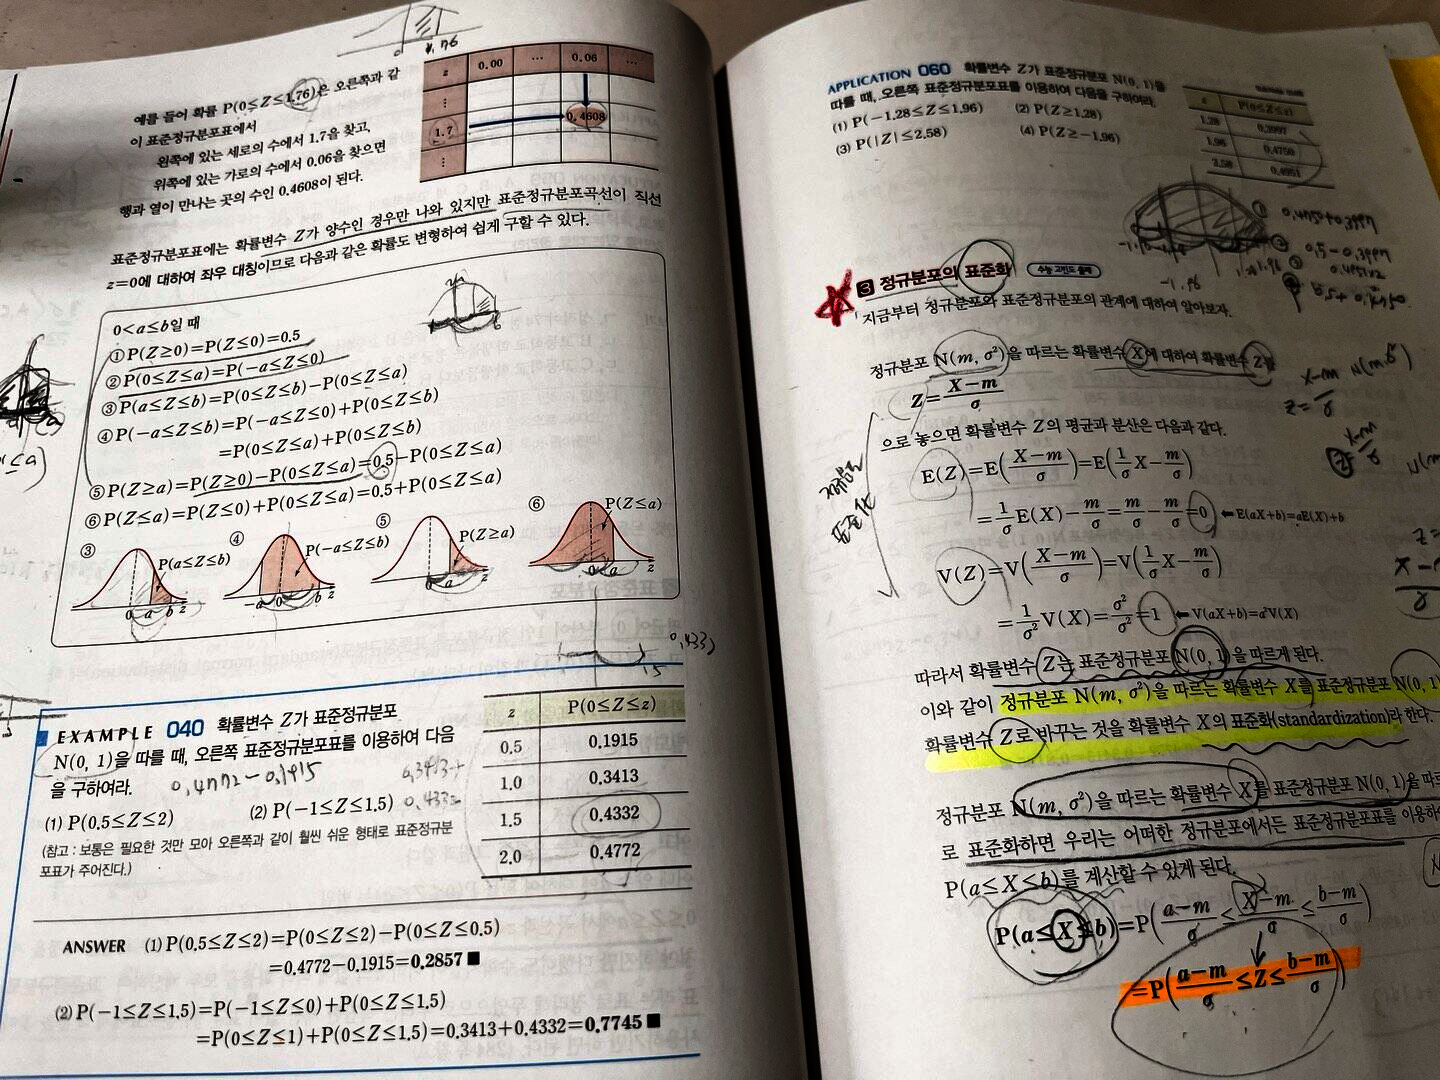 1.76
예를 들어 확률 P(0≤Z≤1.76)은 오른쪽과 같
이 표준정규분포표에서
왼쪽에 있는 세로의 수에서 1.7을 찾고,
위쪽에 있는 가로의 수에서 0.06을 찾으면
행과 열이 만나는 곳의 수인 0.4608이 된다.
z 0.00 ⋯ 0.06 ⋯
⋮
1.7 0.4608
⋮
표준정규분포표에는 확률변수 Z가 양수인 경우만 나와 있지만 표준정규분포곡선이 직선
z=0에 대하여 좌우 대칭이므로 다음과 같은 확률도 변형하여 쉽게 구할 수 있다.
0<a≤b일 때
① P(Z≥0)=P(Z≤0)=0.5
② P(0≤Z≤a)=P(-a≤Z≤0)
③ P(a≤Z≤b)=P(0≤Z≤b)-P(0≤Z≤a)
④ P(-a≤Z≤b)=P(-a≤Z≤0)+P(0≤Z≤b)
=P(0≤Z≤a)+P(0≤Z≤b)
⑤ P(Z≥a)=P(Z≥0)-P(0≤Z≤a)=0.5-P(0≤Z≤a)
⑥ P(Z≤a)=P(Z≤0)+P(0≤Z≤a)=0.5+P(0≤Z≤a)
③ P(a≤Z≤b) 0 a b z
④ P(-a≤Z≤b) -a 0 b z
⑤ P(Z≥a) 0 a z
⑥ P(Z≤a) 0 a z
EXAMPLE 040 확률변수 Z가 표준정규분포
N(0, 1)을 따를 때, 오른쪽 표준정규분포표를 이용하여 다음
을 구하여라.
0.4772-0.1915
(1) P(0.5≤Z≤2) (2) P(-1≤Z≤1.5)
0.3413+
(참고 : 보통은 필요한 것만 모아 오른쪽과 같이 훨씬 쉬운 형태로 표준정규분
포표가 주어진다.)
z P(0≤Z≤z)
0.5 0.1915
1.0 0.3413
1.5 0.4332
2.0 0.4772
ANSWER (1) P(0.5≤Z≤2)=P(0≤Z≤2)-P(0≤Z≤0.5)
=0.4772-0.1915=0.2857 ■
(2) P(-1≤Z≤1.5)=P(-1≤Z≤0)+P(0≤Z≤1.5)
=P(0≤Z≤1)+P(0≤Z≤1.5)=0.3413+0.4332=0.7745 ■
APPLICATION 060 확률변수 Z가 표준정규분포 N(0, 1)을
따를 때, 오른쪽 표준정규분포표를 이용하여 다음을 구하여라.
(1) P(-1.28≤Z≤1.96) (2) P(Z≥1.28)
(3) P(|Z|≤2.58) (4) P(Z≥-1.96)
z P(0≤Z≤z)
1.28 0.3997
1.96 0.4750
2.58 0.4951
-1.96
3 정규분포의 표준화 수능 고빈도 출제
지금부터 정규분포와 표준정규분포의 관계에 대하여 알아보자.
정규분포 N(m, σ²)을 따르는 확률변수 X에 대하여 확률변수 Z를
Z=(X-m)/σ
으로 놓으면 확률변수 Z의 평균과 분산은 다음과 같다.
E(Z)=E((X-m)/σ)=E(1/σ X-m/σ)
=1/σ E(X)-m/σ=m/σ-m/σ=0 ⬅E(aX+b)=aE(X)+b
V(Z)=V((X-m)/σ)=V(1/σ X-m/σ)
=1/σ² V(X)=σ²/σ²=1 ⬅V(aX+b)=a²V(X)
따라서 확률변수 Z는 표준정규분포 N(0, 1)을 따르게 된다.
이와 같이 정규분포 N(m, σ²)을 따르는 확률변수 X를 표준정규분포 N(0, 1)
확률변수 Z로 바꾸는 것을 확률변수 X의 표준화(standardization)라 한다.
정규분포 N(m, σ²)을 따르는 확률변수 X를 표준정규분포 N(0, 1)을 따르
로 표준화하면 우리는 어떠한 정규분포에서든 표준정규분포표를 이용하여
P(a≤X≤b)를 계산할 수 있게 된다.
P(a≤X≤b)=P((a-m)/σ≤(X-m)/σ≤(b-m)/σ)
=P((a-m)/σ≤Z≤(b-m)/σ)